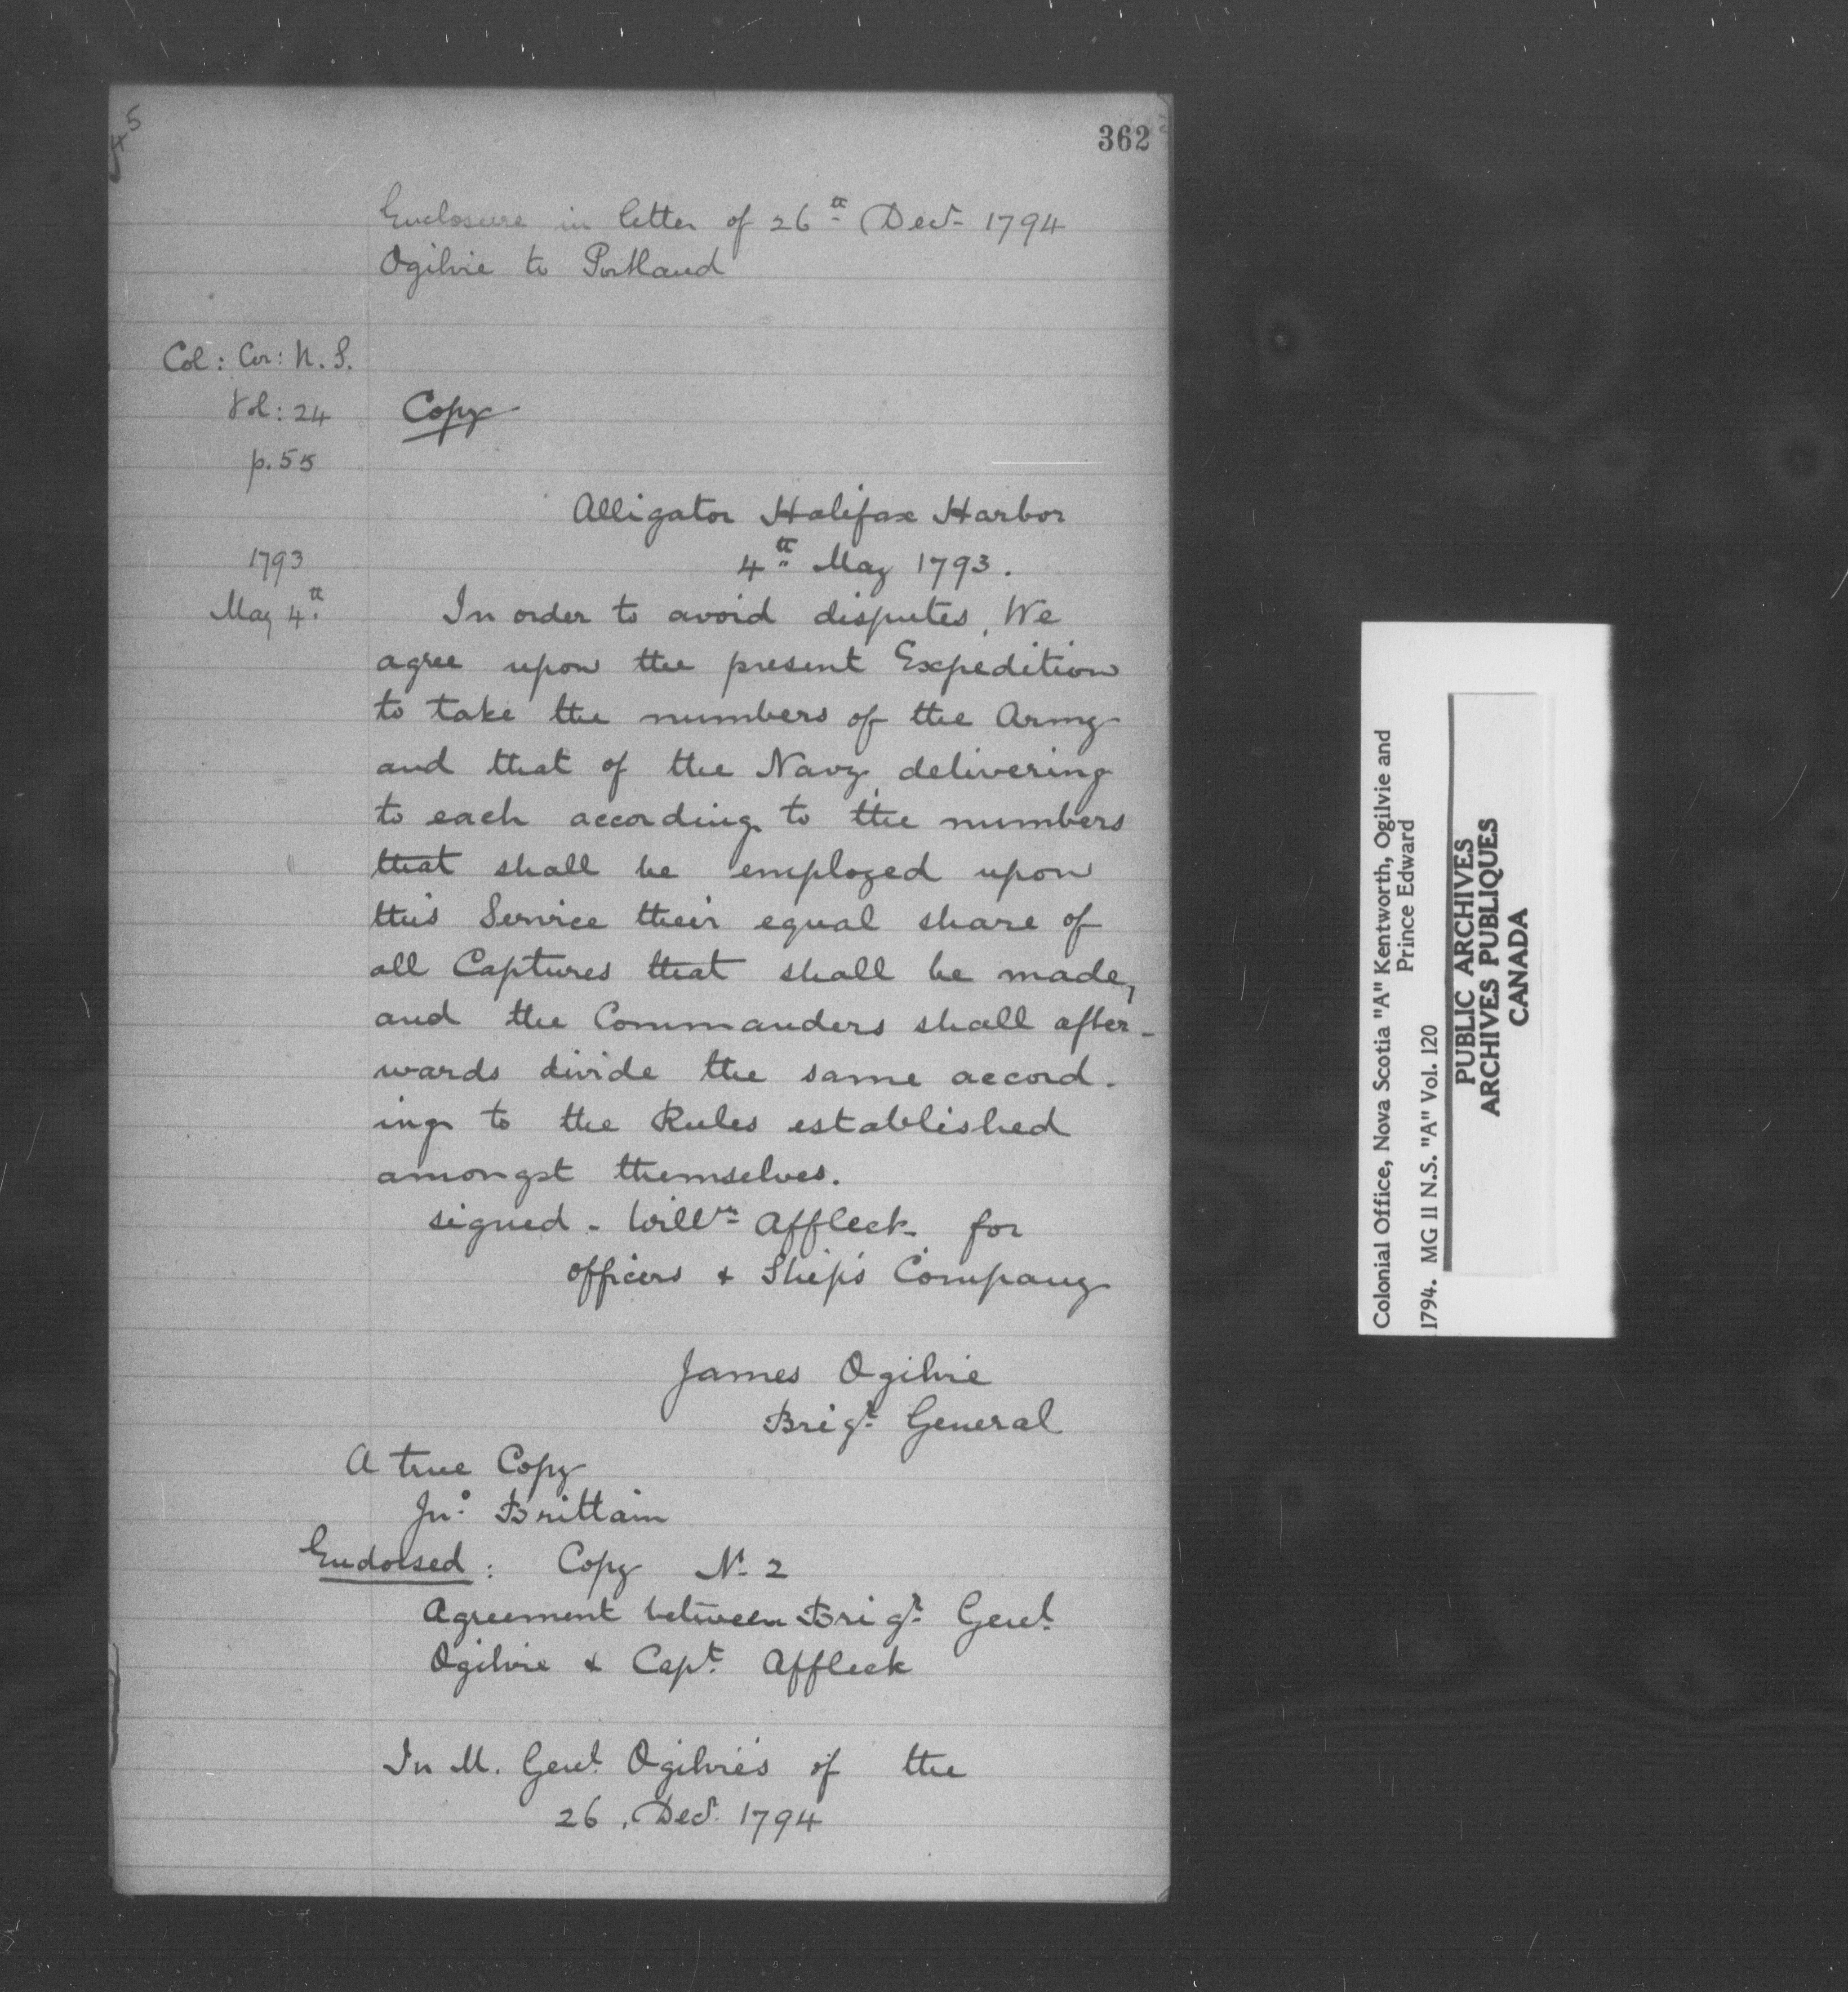 45
362
Enclosure in letter of 26th Decr 1794
Ogilvie to Portland
Col: Cor: N. S.
Vol: 24
p. 55
Copy
Alligator Halifax Harbor
4th May 1793.
1793
May 4th
In order to avoid disputes, We
agree upon the present Expedition
to take the numbers of the Army
and that of the Navy, delivering
to each according to the numbers
that shall be employed upon
this Service their equal share of
all Captures that shall be made,
and the Commanders shall after-
wards divide the same accord-
ing to the Rules established
amongst themselves.
signed - Willm Affleck - for
officers & Ship's Company
James Ogilvie
Brigr General
A true Copy
Jno. Brittain
Endorsed: Copy No 2
Agreement between Brigr Genl
Ogilvie & Capt. Affleck
In M. Genl Ogilvie's of the
26, Decr 1794
Colonial Office, Nova Scotia "A" Kentworth, Ogilvie and
Prince Edward
1794. MG 11 N.S. "A" Vol. 120
PUBLIC ARCHIVES
ARCHIVES PUBLIQUES
CANADA